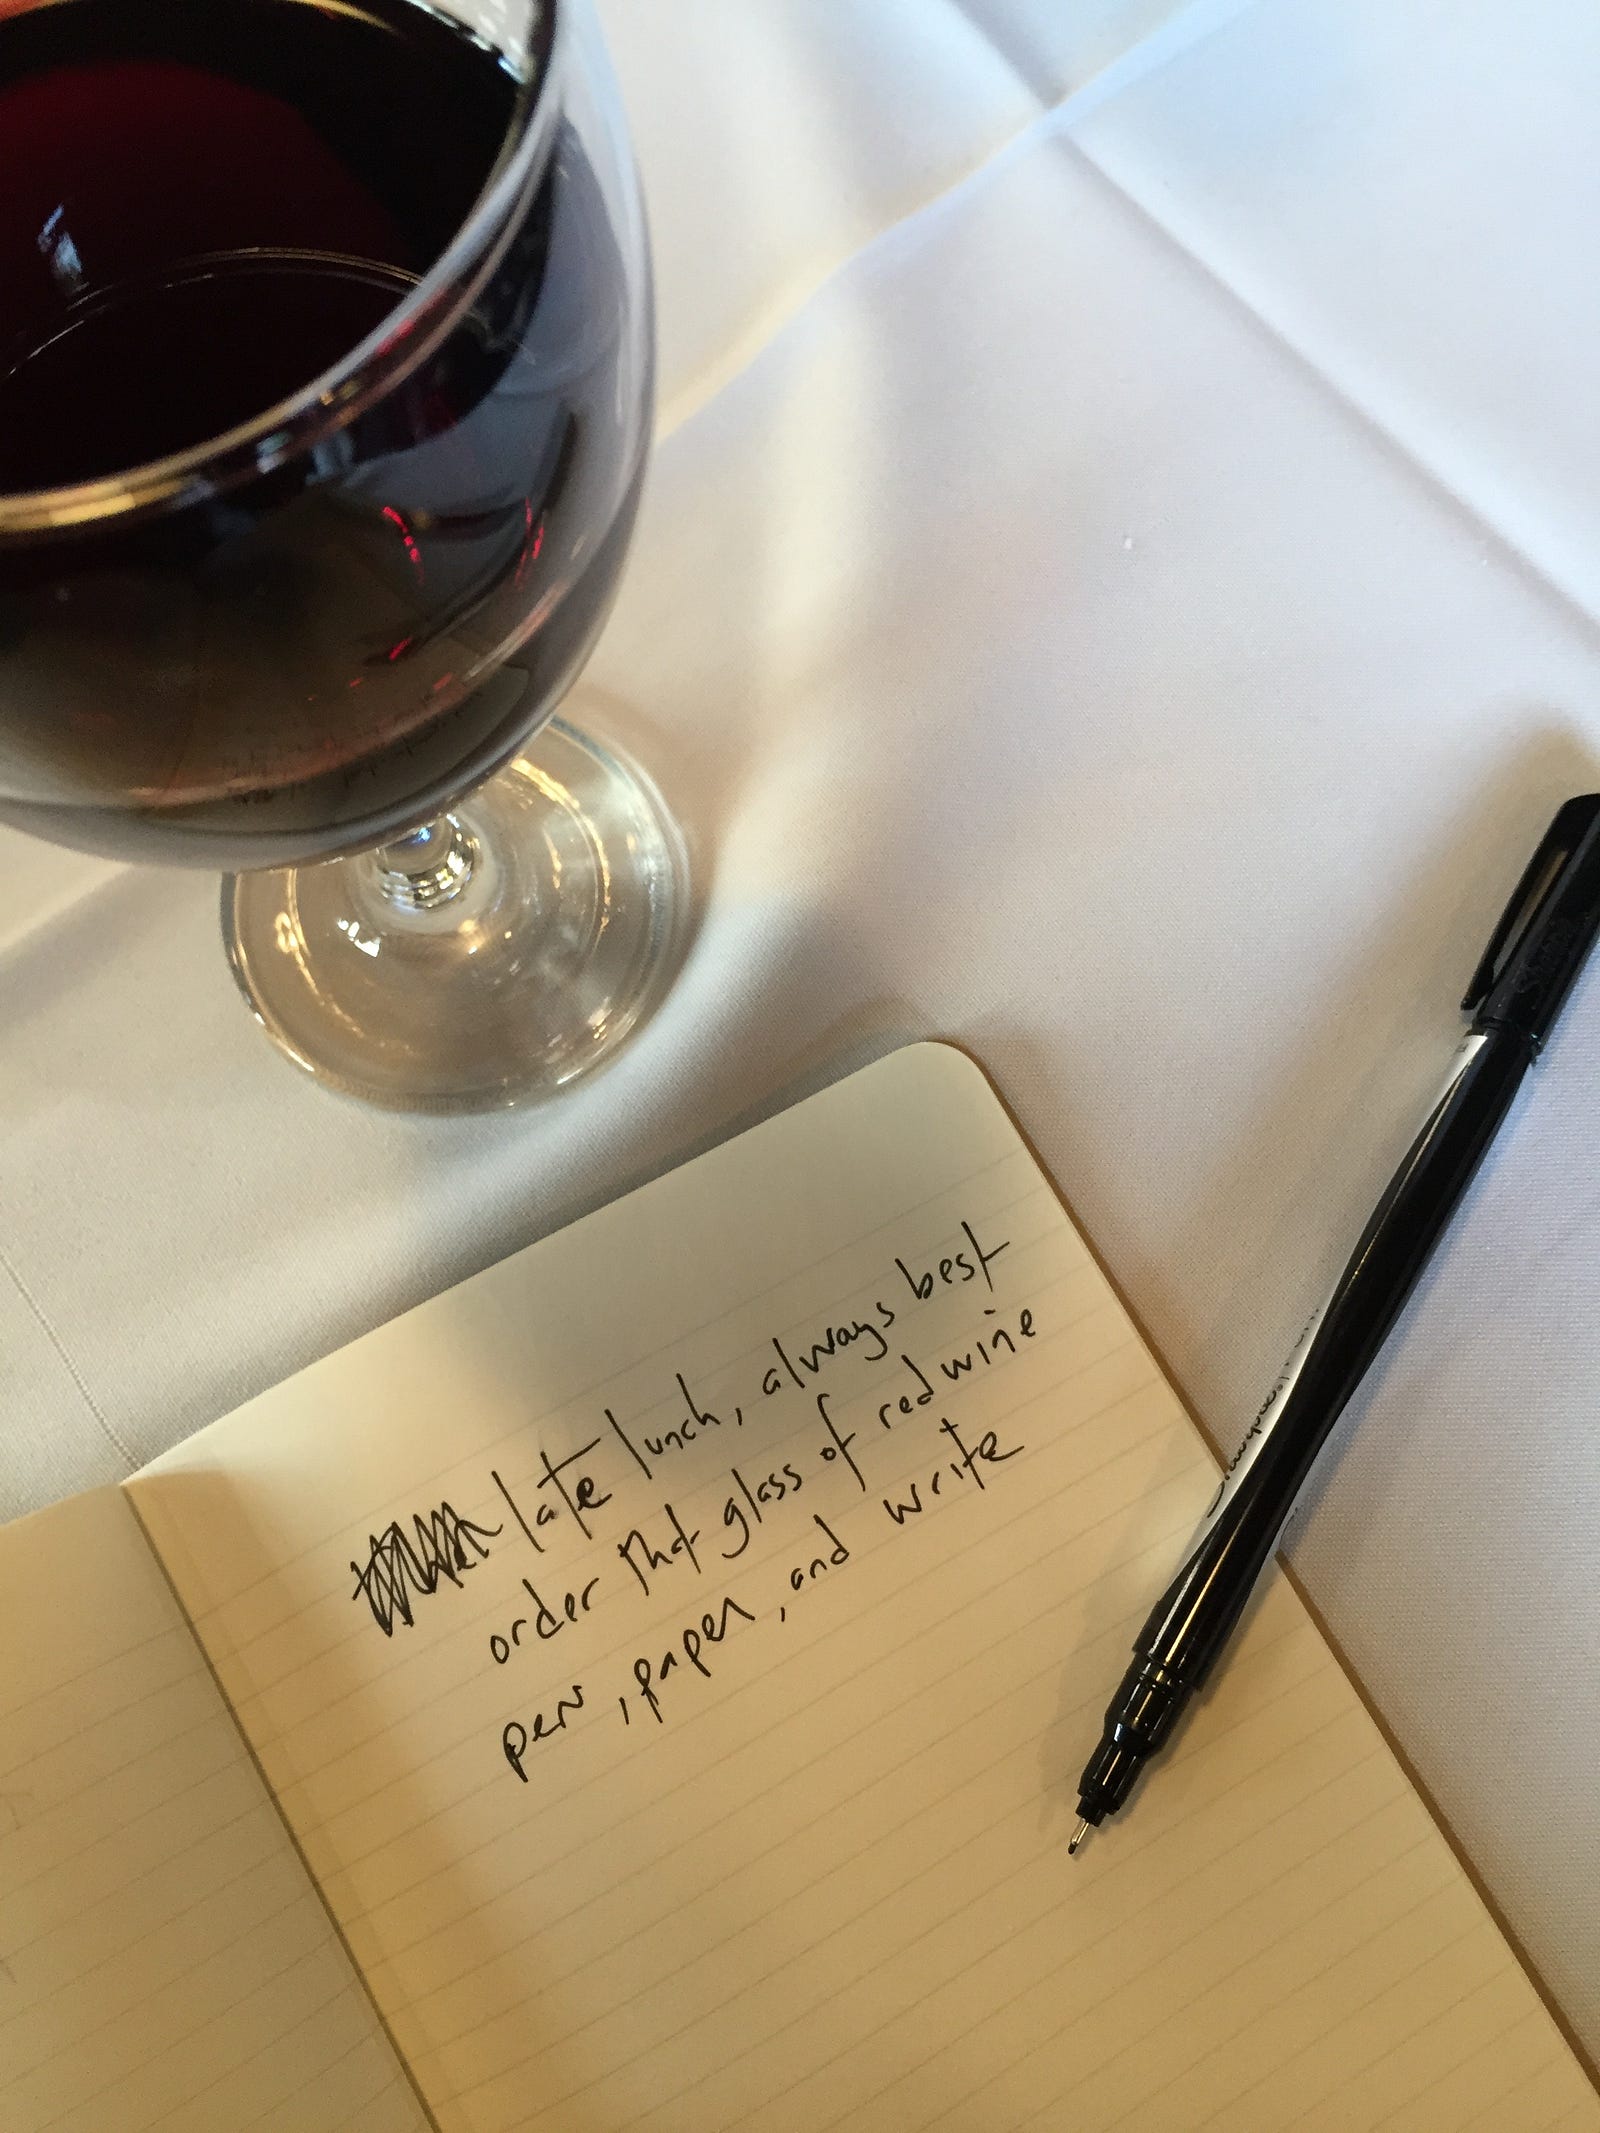 late lunch, always best
order that glass of red wine
pen, paper, and write